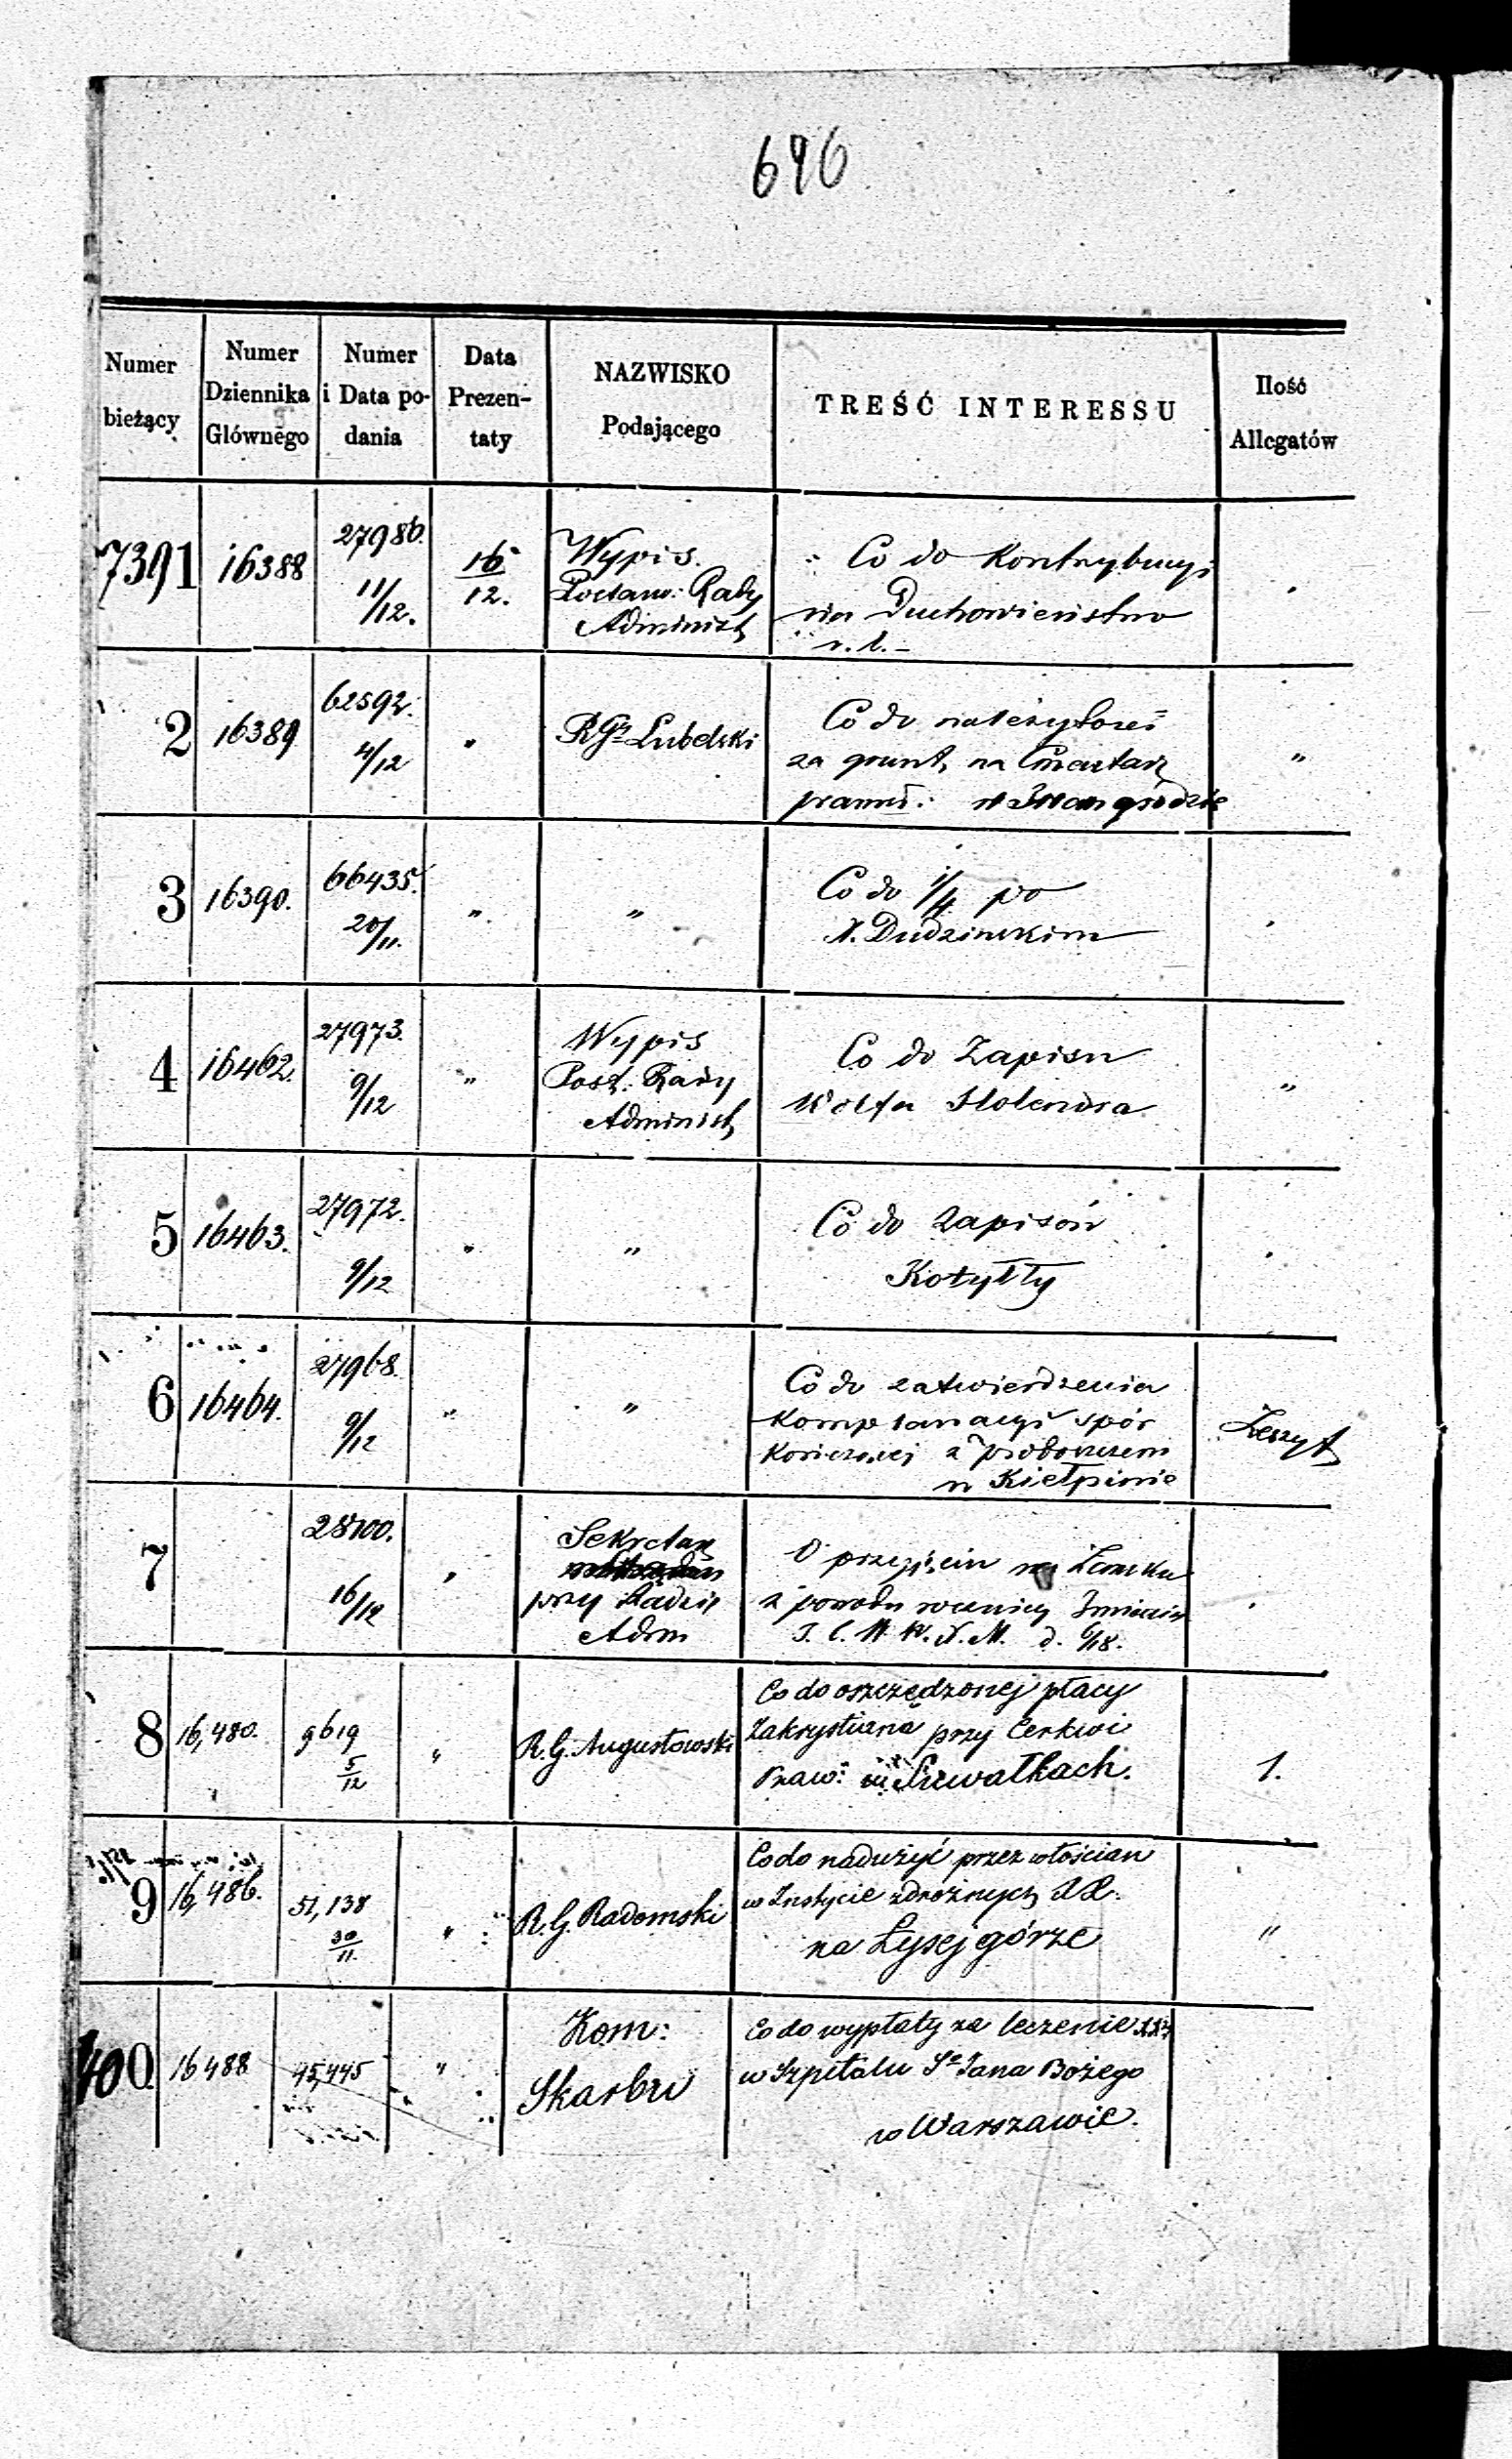 696
Numer bieżący
Numer Dziennika Głównego
Numer i Data podania
Data Prezentaty
NAZWISKO Podającego
TREŚĆ INTERESSU
Ilość Allegatów
7391 16388 27986. 11/12. 16/12. Wypis.
Postanw: Rady
Administ
Co do Kontrybucyi
na Duchowieństwo
r. l. –
2 16389 62592. 4/12 " R Gr Lubelski
Co do należytości
za grunt na Cmentarz
prawos: w Iwangrodzie "
3 16390. 66435. 20/11. " "
Co do 1/4 po
X. Dudzinskim
4 16462. 27973. 9/12 " Wypis
Post: Rady
Administ
Co do Zapisu
Wolfa Holendra "
5 16463. 27972. 9/12 " "
Co do Zapisów
Kotyłły
6 16464. 27968. 9/12 " "
Co do zatwierdzenia
Komplanacyi spór
Kończącej z proboszczem
w Kiełpinie
Zeszyt
7 28100. 16/12 " Sekretarz
przy Radzie
Adm
O przyjęciu na Zamku
z powodu rocznicy Imienin
J. C. W. W. X. M. d. 6/18.
8 16,480. 9619 5/12 " R. G. Augustowski
Co do oszczędzonej płacy
Zakrystiana przy Cerkwi
Praw: w Suwałkach. 1.
9 16,486. 51,138 30/11. " R. G. Radomski
Co do nadużyć przez włościan
w Instycie zdrożnych XX.
na Łysej górze "
400 16488 45,445 " Kom:
Skarbu
Co do wypłaty za leczenie
w Szpitalu Sgo Jana Bożego
w Warszawie.